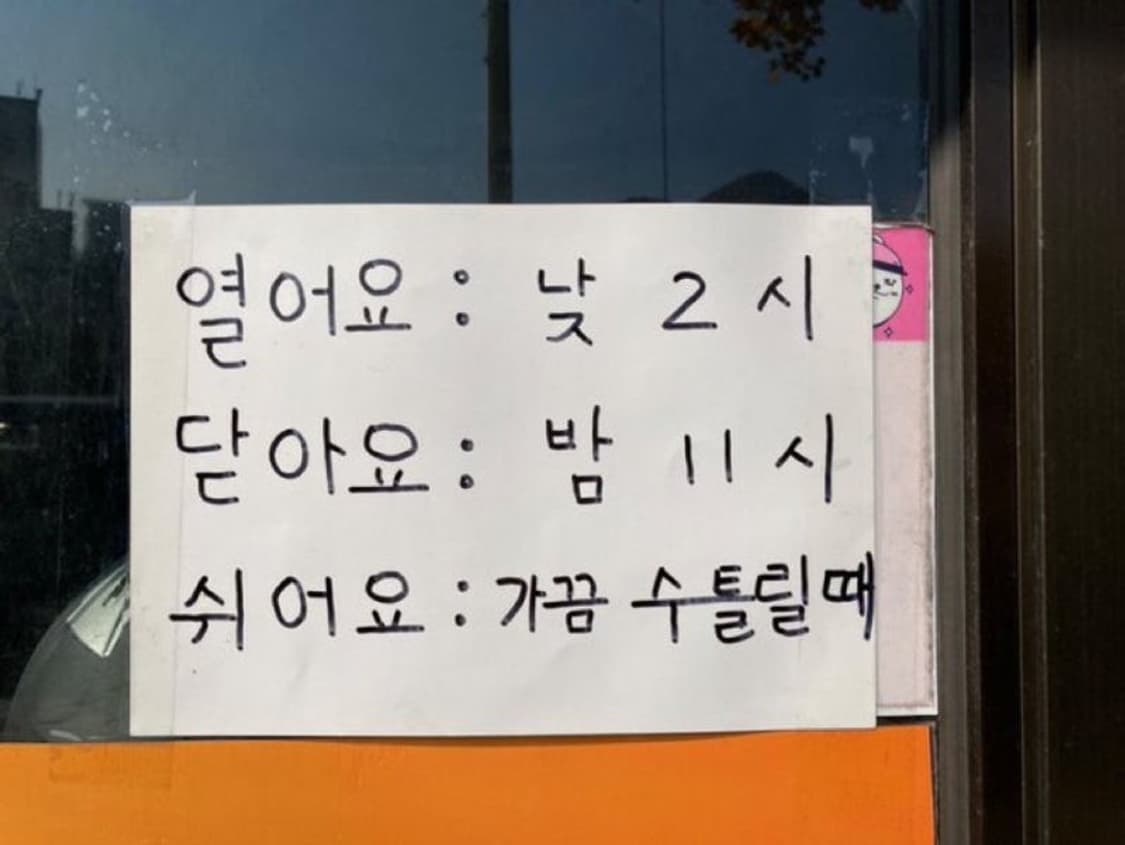 열어요 : 낮 2 시
닫아요 : 밤 11 시
쉬어요 : 가끔 수틀릴때